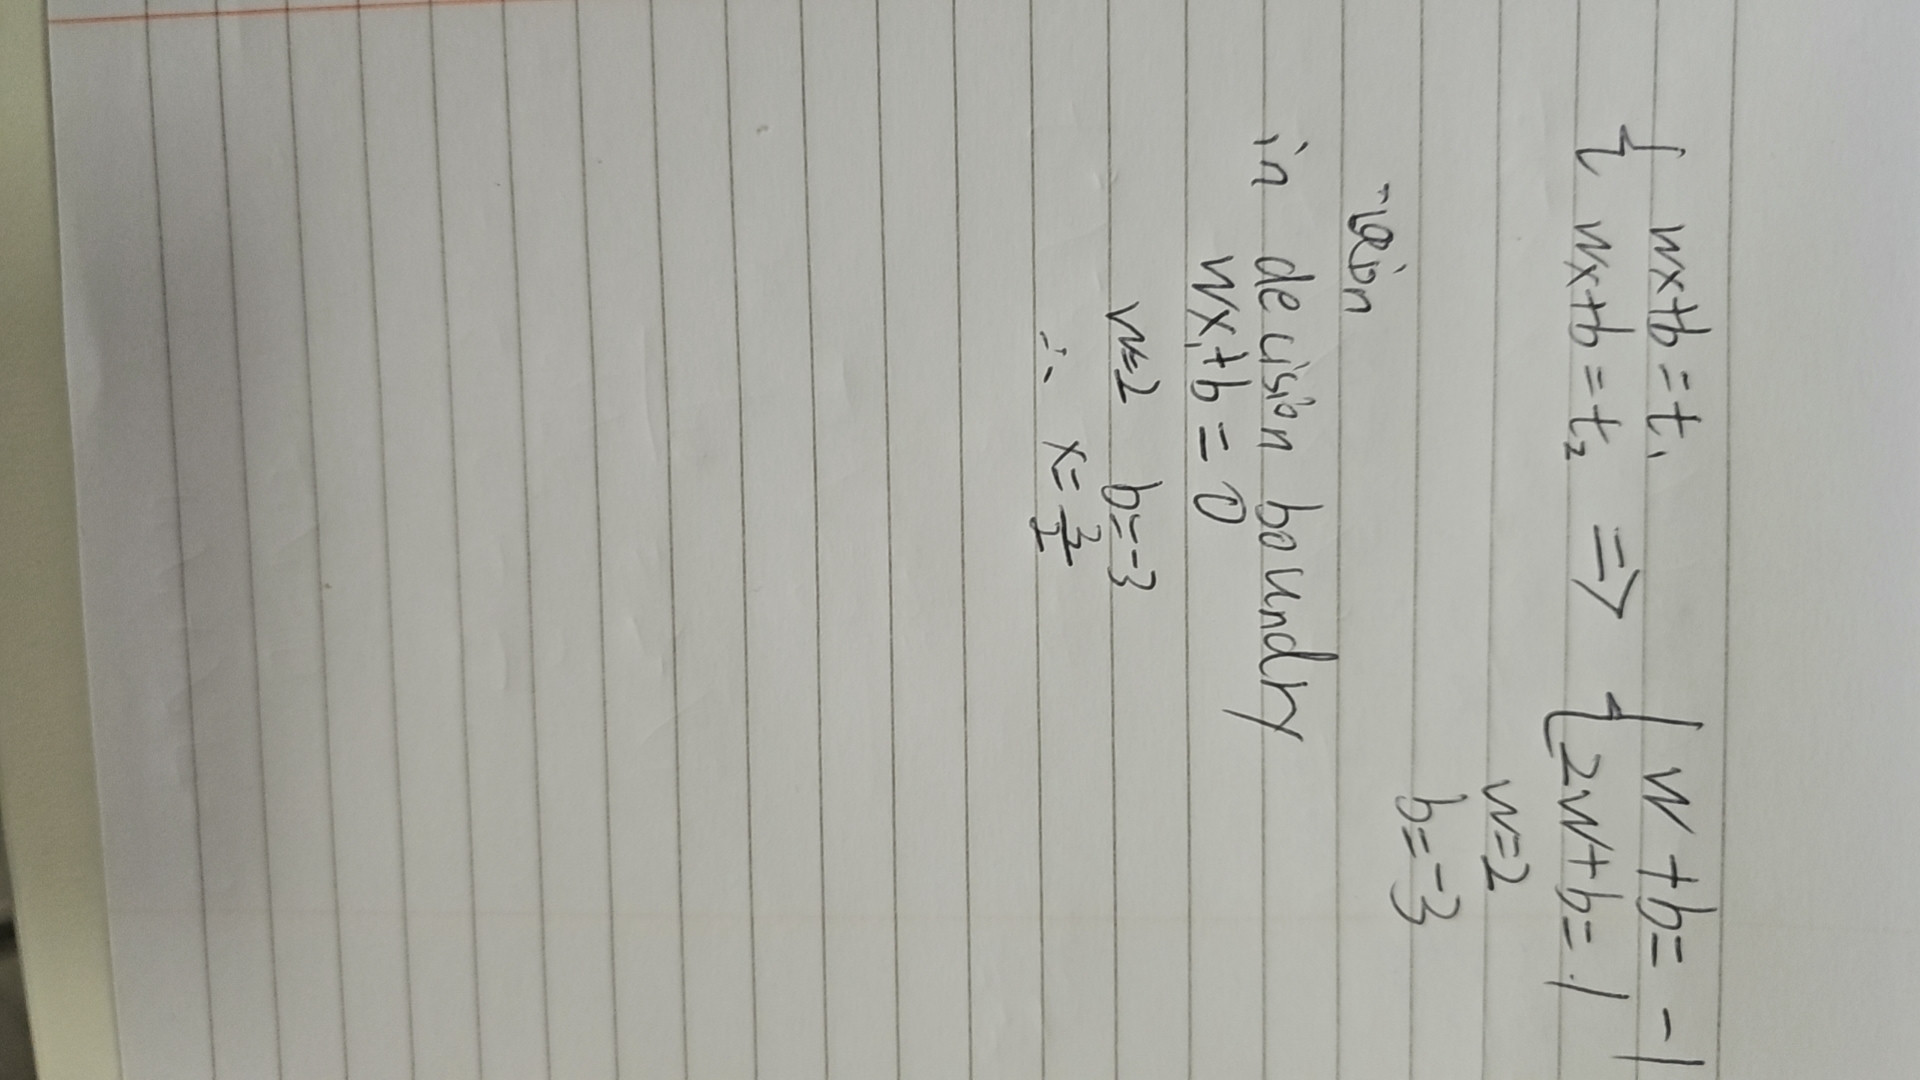 { wx+b=t₁
{ wx+b=t₂ ⇒ { w+b=-1
{ 2w+b=1
w=2
b=-3
in decision boundry
wx₁+b=0
w=2 b=-3
∴ x=